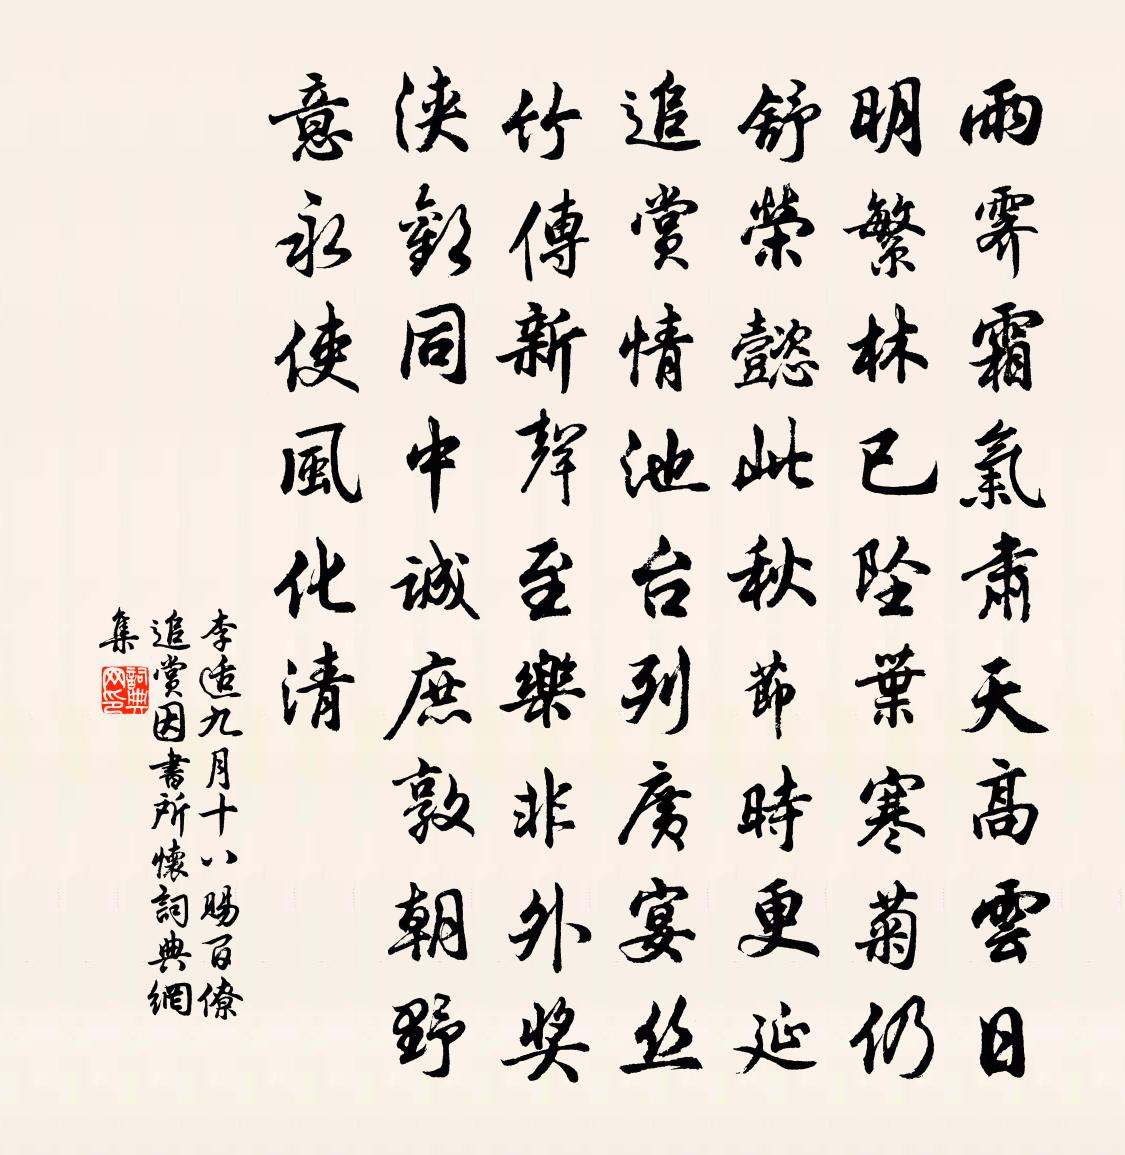 雨霽霜氣肅天高雲日
明繁林已墜葉寒菊仍
舒榮懿此秋節時更延
追賞情池台列廣宴丝
竹傳新聲至樂非外奖
浹歡同中誠庶敦朝野
意永使風化清
李适九月十八賜百僚
追賞因書所懷詞典網
集
詞典网印